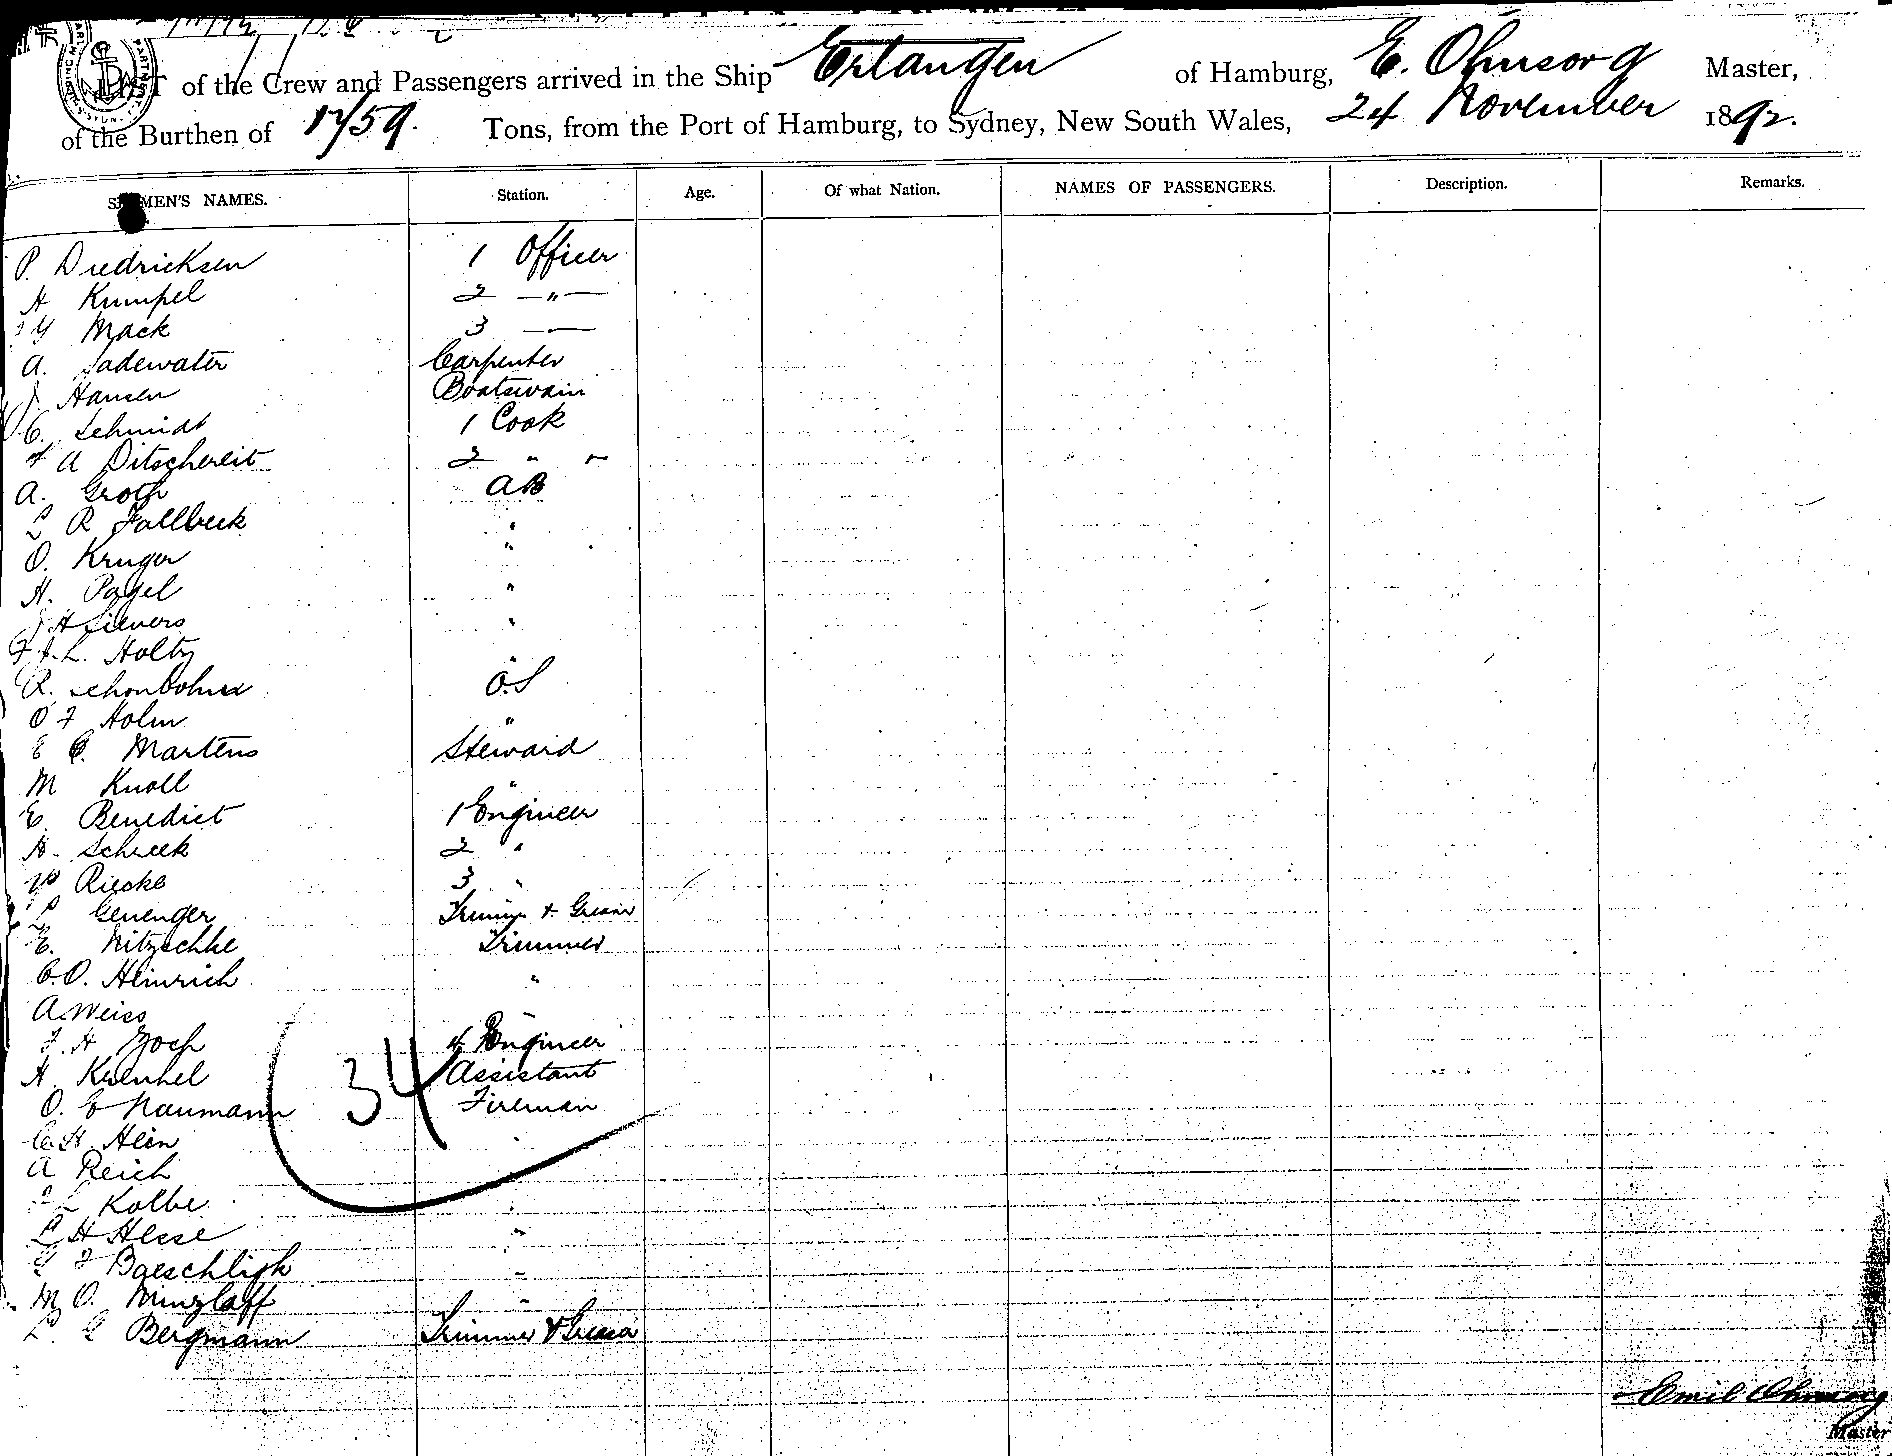 LIST of the Crew and Passengers arrived in the Ship Erlangen of Hamburg, E. Ohnsorg Master,
of the Burthen of 1759. Tons, from the Port of Hamburg, to Sydney, New South Wales, 24 November 1892.
SEAMEN'S NAMES. Station. Age. Of what Nation. NAMES OF PASSENGERS. Description. Remarks.
P. Diedricksen 1 Officer
H Kumpel 2 —"—
Mack 3 —
A. Sadewater Carpenter
J. Hansen Boatswain
C. Schmidt 1 Cook
A Ditschereit 2 "
A. Groth AB
R Fallbeck "
O. Kruger "
H. Pagel "
J H Sievers "
F. J. L. Holtz "
R. Schonbohm O.S
O F Holm "
E C. Martens Steward
M Knoll "
E. Benedict 1 Engineer
H. Schreek 2 "
W Riecke 3 "
Genenger & Greaser
E. Nitzschke Trimmer
C. O. Heinrich "
A. Weiss "
F. H Zoch 4 Engineer
H. Krenkel Assistant
O. E Naumann Fireman
34
C. H. Hein "
A Reich
Kolbe "
L H Hesse "
F Baeschligk "
M O. Minzlaff "
G Bergmann Trimmer & Greaser
Emil Ohnsorg
Master